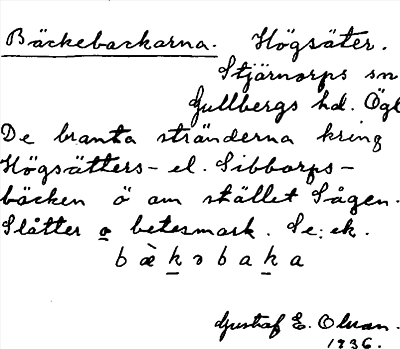 Bäckebackarna. Högsäter.
Stjärnorps sn
Gullbergs hd. Ögl
De branta stränderna kring
Högsätters- el. Sibborps-
bäcken ö om stället Sågen.
Slåtter o betesmark. Se: ek.
b æ̀ k ə b a k a
Gustaf E. Olsson.
1936.